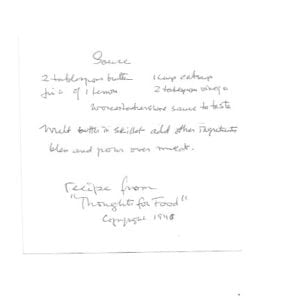 Sauce
2 tablespoons butter 1 cup catsup
juice of 1 lemon 2 tablespoon vinegar
worcestershire sauce to taste
Melt butter in skillet add other ingredients
and pour over meat.
recipe from
"Thoughts for Food"
Copyright